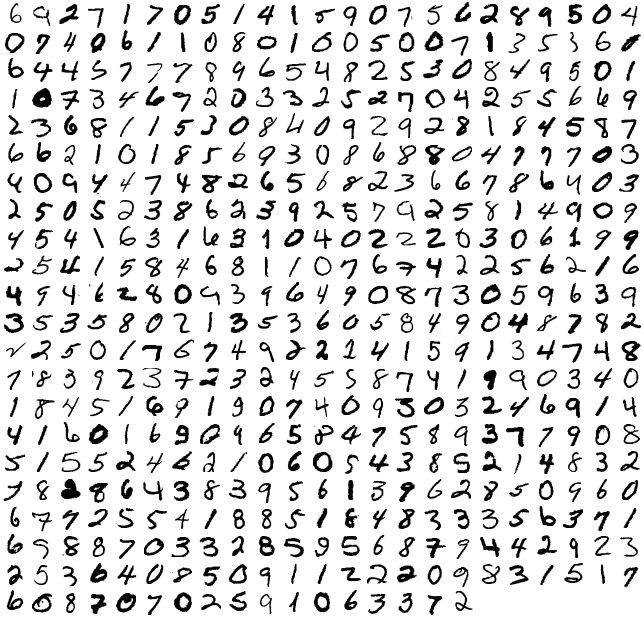 6 9 2 7 1 7 0 5 1 4 1 5 9 0 7 5 6 2 8 9 5 0 4
0 7 4 0 6 1 1 0 8 0 1 0 0 5 0 0 7 1 3 5 3 6 8
6 4 4 5 7 7 7 8 9 6 5 4 8 2 5 3 0 8 4 9 5 0 1
1 0 7 3 4 6 9 2 0 3 3 2 5 2 7 0 4 2 5 5 6 6 9
2 3 6 8 1 1 5 3 0 8 4 0 9 2 9 2 8 1 8 4 5 8 7
6 6 2 1 0 1 8 5 6 9 3 0 8 6 8 8 0 4 7 7 7 0 3
4 0 9 4 4 7 4 8 2 6 5 6 8 2 3 6 6 7 8 6 4 0 3
2 5 0 5 2 3 8 6 2 5 9 2 5 7 9 2 5 8 1 4 9 0 9
4 5 4 1 6 3 1 6 3 1 0 4 0 2 2 2 0 3 0 6 1 9 9
2 5 4 1 5 8 4 6 8 1 1 0 7 6 7 4 2 2 5 6 2 1 6
4 9 4 6 2 8 0 9 3 9 6 4 9 0 8 7 3 0 5 9 6 3 9
3 5 3 5 8 0 2 1 3 5 3 6 0 5 8 4 9 0 4 8 7 8 2
2 2 5 0 1 7 6 7 4 9 2 2 1 4 1 5 9 1 3 4 7 4 8
7 8 3 9 2 3 7 2 3 2 4 5 5 8 7 4 1 9 9 0 3 4 0
1 8 4 5 1 6 9 1 9 0 7 4 0 9 3 0 3 2 4 6 9 1 4
4 1 6 0 1 6 9 0 9 6 5 8 4 7 5 8 9 3 7 7 9 0 8
5 1 5 5 2 4 6 2 1 0 6 0 5 4 3 8 5 2 1 4 8 3 2
7 8 2 8 6 4 3 8 3 9 5 6 1 3 9 6 2 8 5 0 9 6 0
6 7 7 2 5 5 4 1 8 8 5 1 8 4 8 3 3 3 5 6 3 7 1
6 9 8 8 7 0 3 3 2 8 5 9 5 6 8 7 9 4 4 2 9 2 3
2 5 3 6 4 0 8 5 0 9 1 1 2 2 2 0 9 8 3 1 5 1 7
6 0 8 7 0 7 0 2 5 9 1 0 6 3 3 7 2